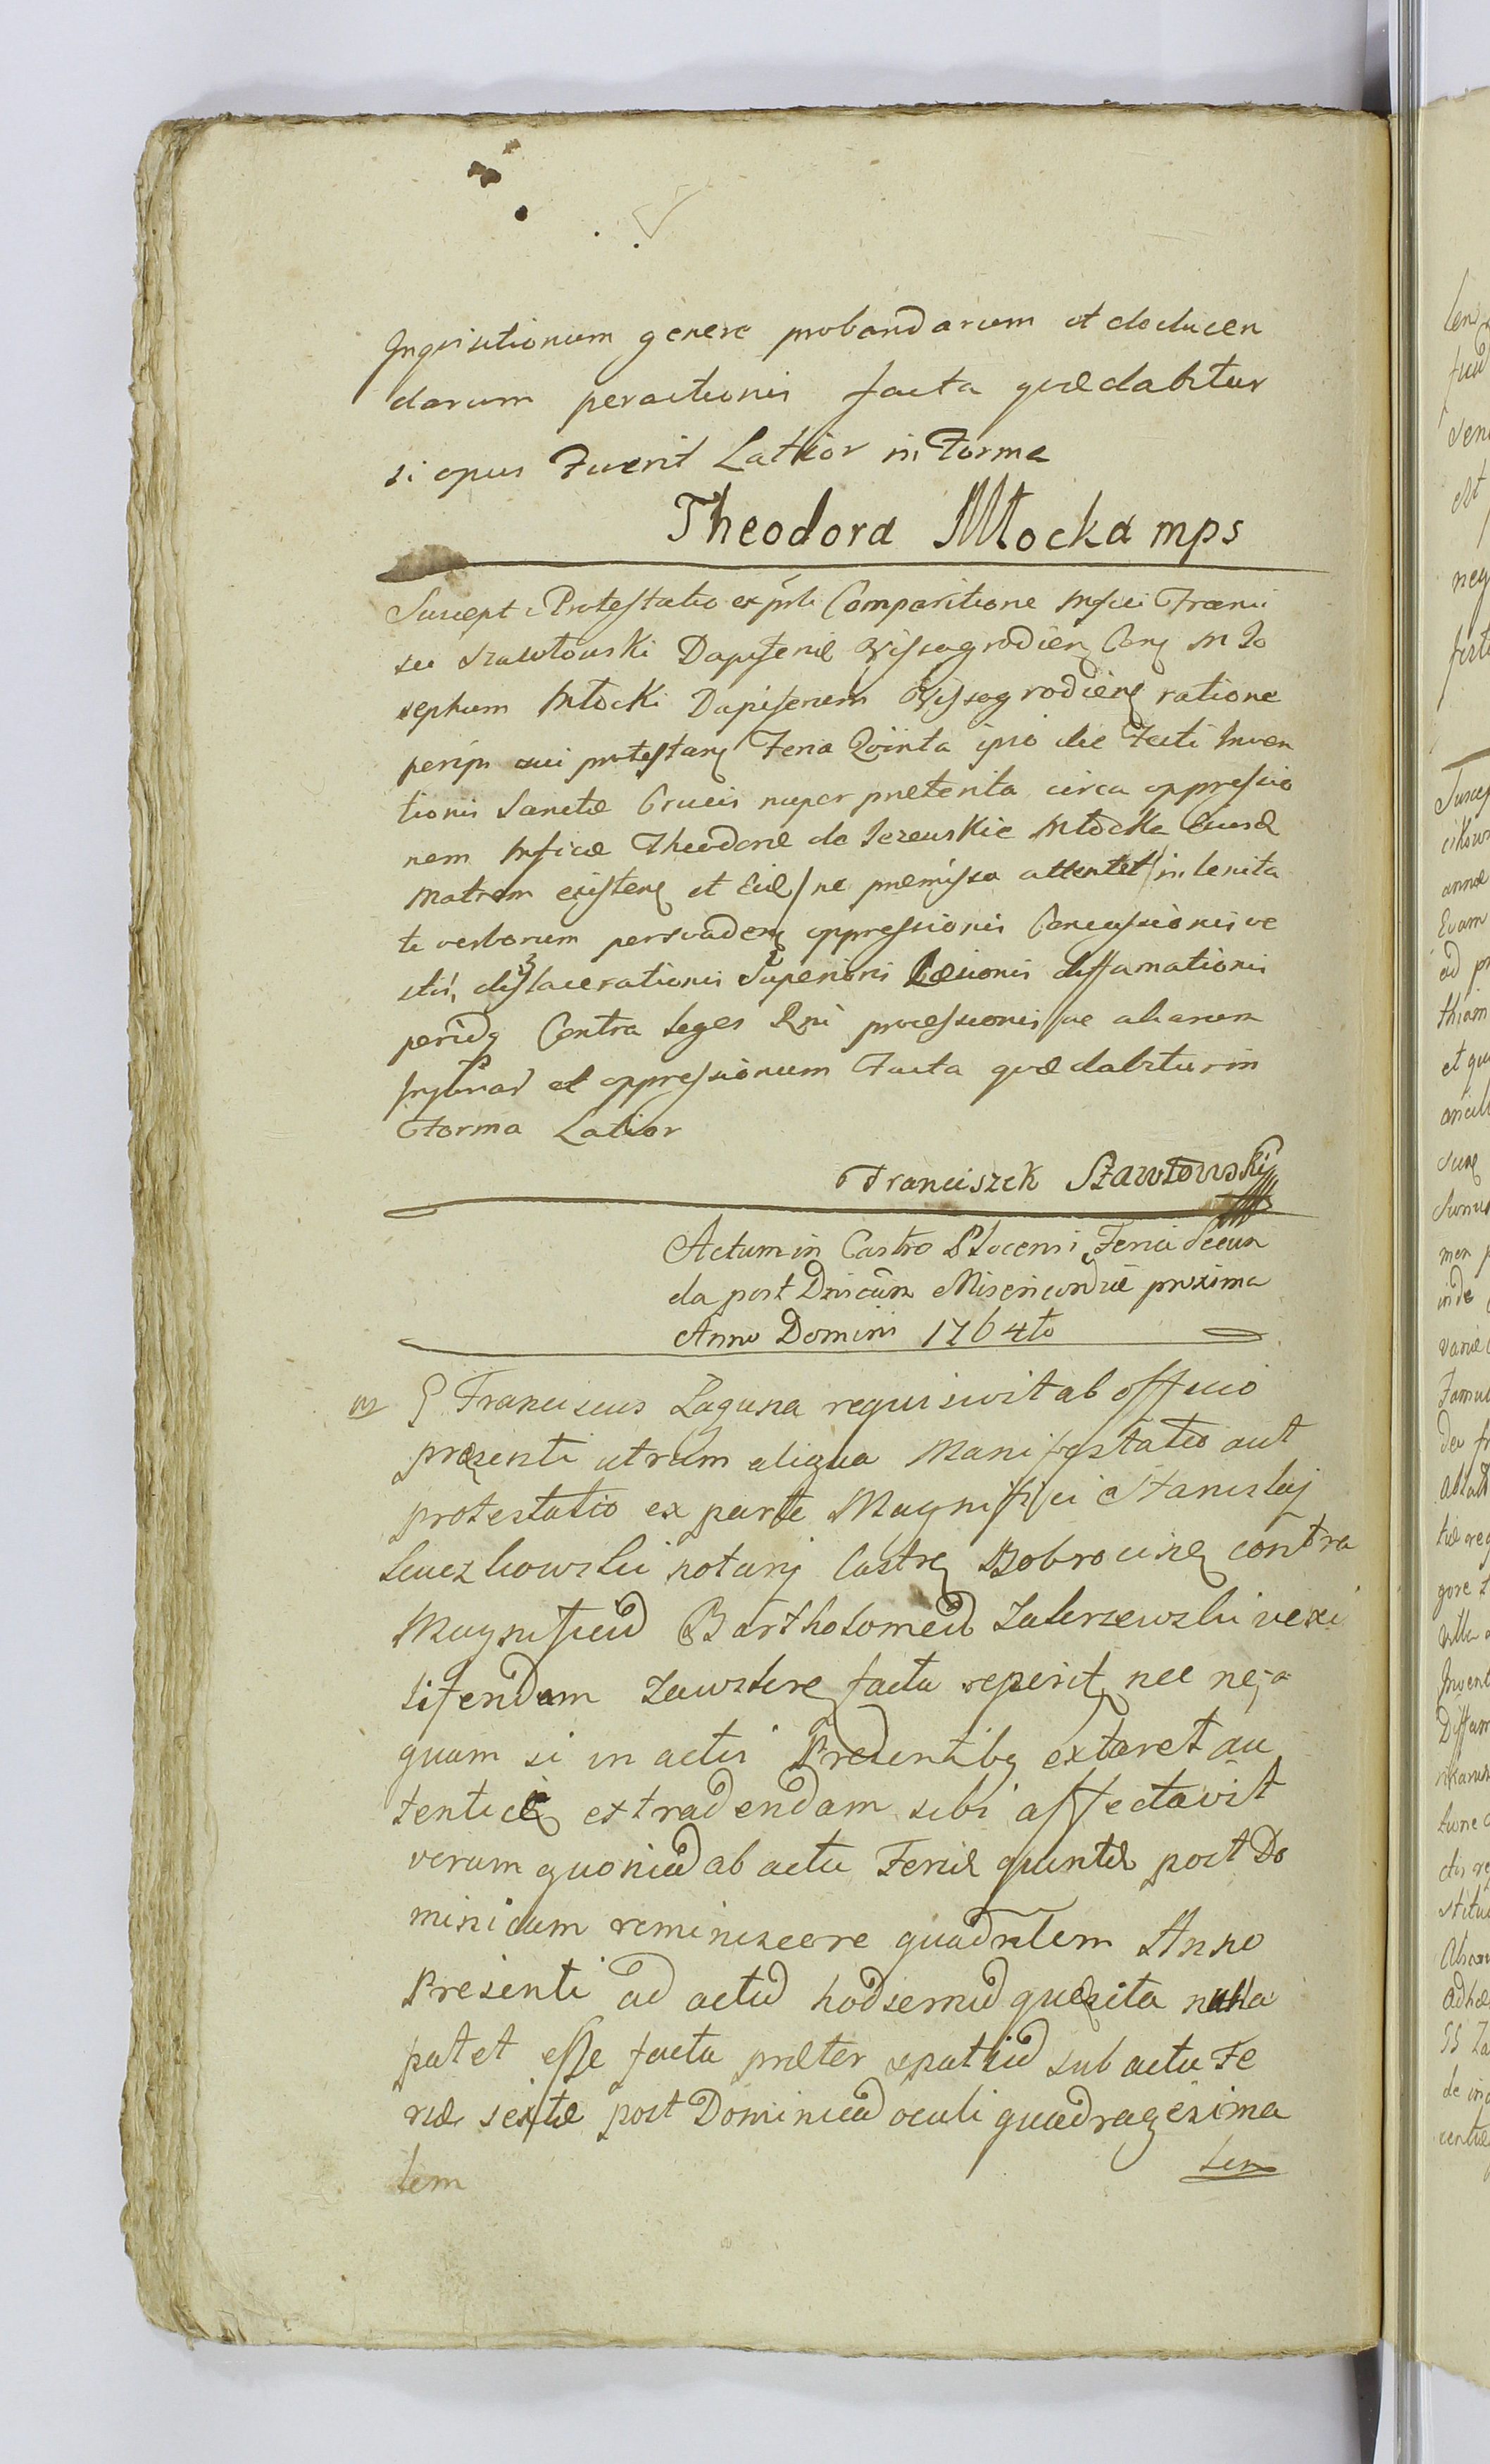 Inquisitionum genere probandarum et deducen
darum peractionis facta quæ dabitur
si opus Fuerit Latior in Forma
Theodora Młocka mps
Suscept Protestatio ex psti Comparitione Mfici Franci
sci Szawłowski Dapiferi Wissogrodien Con M Jo
sephum Młocki Dapiferum Wyssogrodien ratione
protestan Feria Quinta ipso die Festi Inven
tionis Sanctæ Crucis nuper præterita circa oppressio
nem Mficæ Theodoræ de Jezewskie Młocka Eiusd
Matrem existen et Eid / ne præmissa attentet / in lenita
te verborum persvaden oppressionis Concussionis ve
stis, dislacerationis Superioris Læsionis diffamationis
Contra Leges Rni processionis sve aliarum
et oppressionum Facta quæ dabitur in
Forma Latior
Franciszek Szawłowski
Actum in Castro Plocensi Feria Secun
da post Dnicam Misericordiæ proxima
Anno Domini 1764to
G Franciscus Laguna requisivit ab officio
præsenti utrum aliqua Manifestatio aut
protestatio ex parte Magnifici Stanislaj
notarij Castren Dobrocinen contra
Magnificu Bartholomeu Zakrzewski vexi
liferidam Zawskren facta reperit nec ne, a
quam si in actis Presentibq extaret au
tentice extradendam sibi affectavit
verum quoniad ab actu Feriæ quintæ post Do
minicam reminiscere quadralem Anno
Presenti ad actu hodiernu quæsita nulla
patet esse facta præter spatiu sub actu Fe
riæ sextæ post Dominica oculi quadragesima
lem
lem